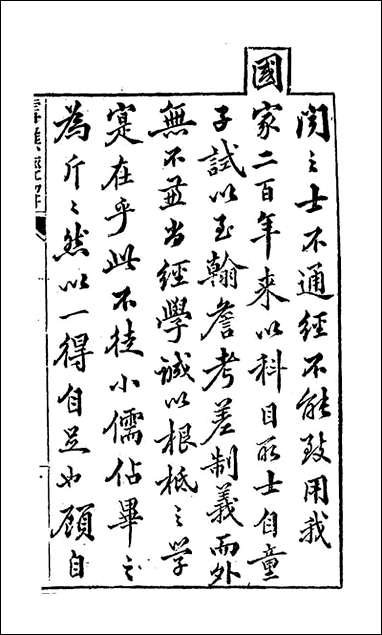 閱之士不通經不能致用我
國家二百年來以科目取士自童
子試以至翰詹考差制義而外
無不並尚經學誠以根柢之學
寔在乎此不徒小儒佔畢之
為斤之然以一得自足也顧自